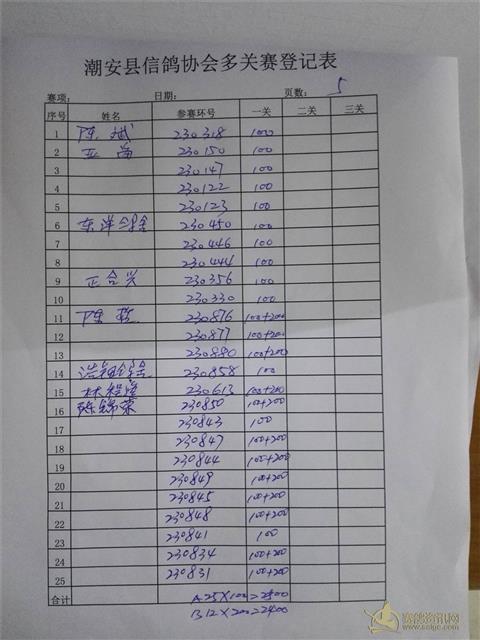 潮安县信鸽协会多关赛登记表
赛项: 日期: 页数: 5
序号 姓名 参赛环号 一关 二关 三关
1 陈斌 230318 100
2 230150 100
3 230147 100
4 230122 100
5 230123 100
6 东洋鸽舍 230450 100
7 230446 100
8 230444 100
9 正合兴 230356 100
10 230330 100
11 230876 100+200
12 230877 100+200
13 230880 100+200
14 鸽舍 230858 100
15 230613 100+200
16 陈锦荣 230850 100+200
17 230843 100
18 230847 100+200
19 230844 100+200
20 230849 100+200
21 230845 100+200
22 230848 100+200
23 230841 100
24 230834 100+200
25 230831 100+200
合计 A25×100=2500
B12×200=2400
赛鸽资讯网
www.saige.com